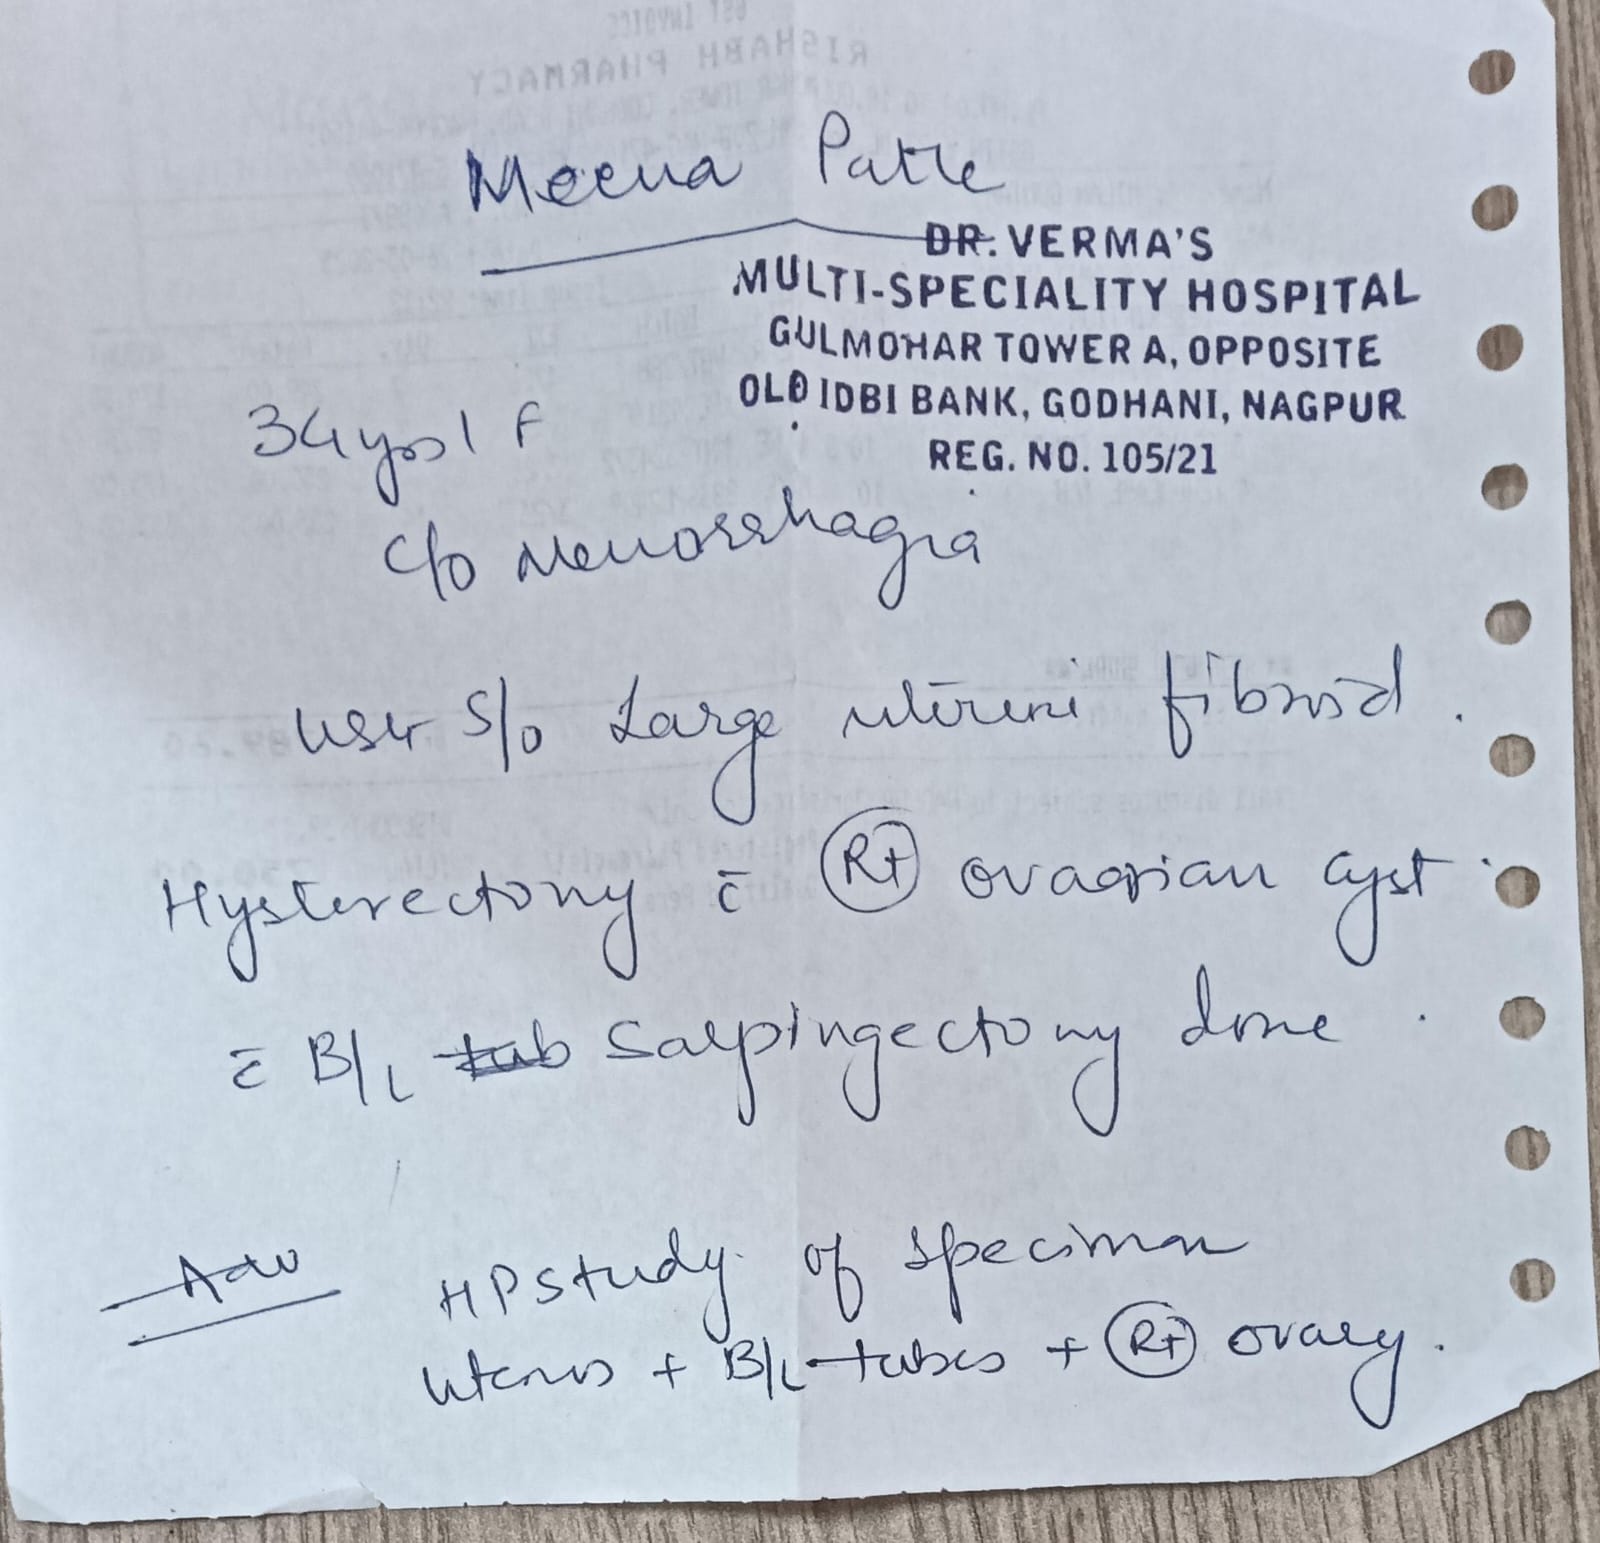 Meena Patle
DR. VERMA'S
MULTI-SPECIALITY HOSPITAL
GULMOHAR TOWER A, OPPOSITE
OLD IDBI BANK, GODHANI, NAGPUR
REG. NO. 105/21
34yrs / F
c/o Menorrhagia
USG s/o Large uterine fibroid.
Hysterectomy c̄ Rt ovarian cyst.
c̄ B/L tub Salpingectomy done.
Adv HP study of speciman
uterus + B/L tubes + Rt ovary.